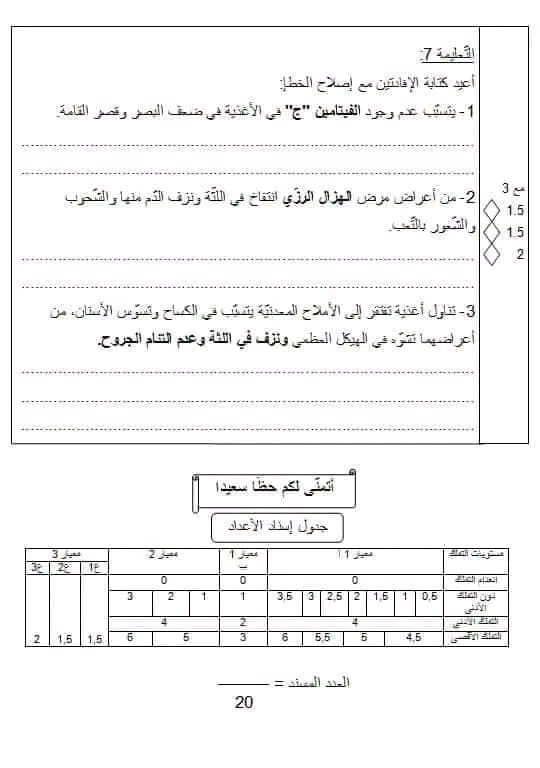 التّعليمة 7:
أعيد كتابة الإفادتين مع إصلاح الخطإ:
1- يتسبّب عدم وجود الفيتامين "ج" في الأغذية في ضعف البصر وقصر القامة.
2- من أعراض مرض الهزال الرزّي انتفاخ في اللثّة ونزف الدّم منها والشّحوب
والشّعور بالتّعب.
3- تناول أغذية تفتقر إلى الأملاح المعدنيّة يتسبّب في الكساح وتسوّس الأسنان، من
أعراضهما تشوّه في الهيكل العظمي ونزف في اللثة وعدم التئام الجروح.
مع 3
1.5
1.5
2
أتمنّى لكم حظّا سعيدا
جدول إسناد الأعداد
مستويات التملك معيار 1 أ معيار 1 ب معيار 2 معيار 3
ع1 ع2 ع3
انعدام التملك 0 0 0
دون التملك الأدنى 0,5 1 1,5 2 2,5 3 3,5 1 1 2 3
التملك الأدنى 4 2 4
التملك الأقصى 4,5 5 5,5 6 3 5 6 1,5 1,5 2
العدد المسند =
20